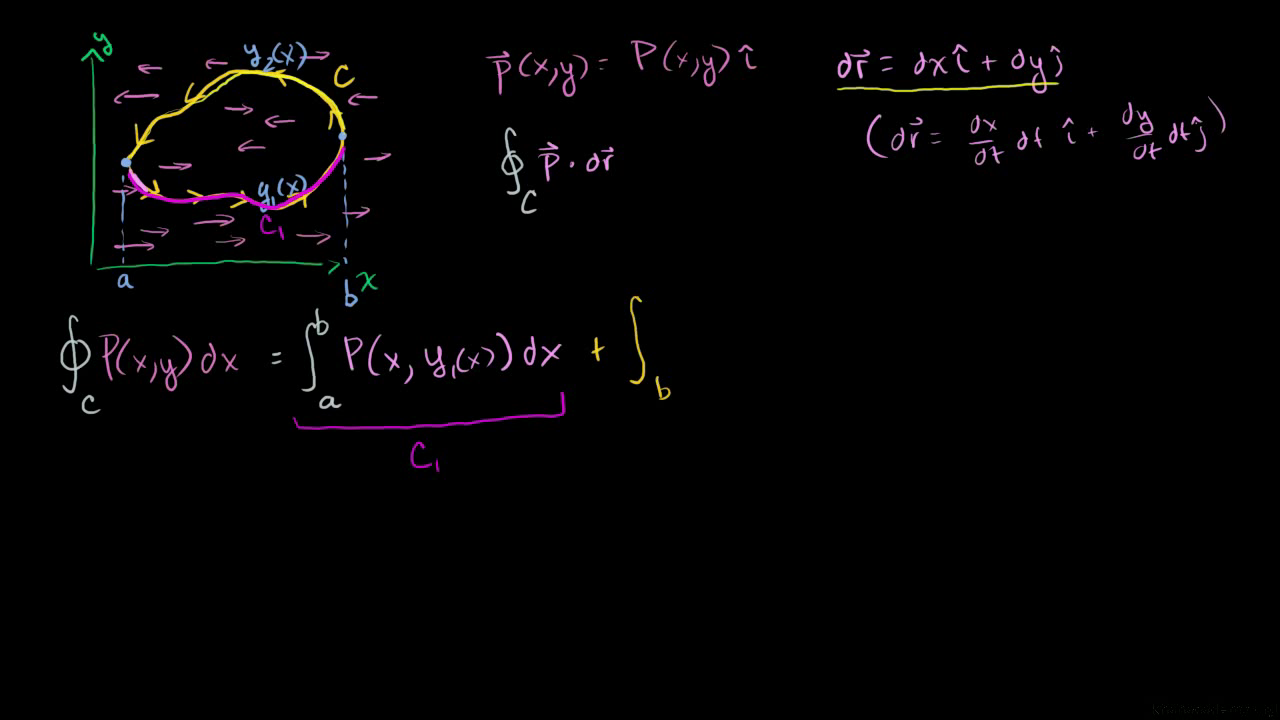 y
y₂(x)
C
y₁(x)
C₁
a
b
x
p⃗(x,y) = P(x,y) î
∮_C p⃗ · dr⃗
dr⃗ = dx î + dy ĵ
(dr⃗ = dx/dt dt î + dy/dt dt ĵ)
∮_C P(x,y) dx = ∫_a^b P(x, y₁(x)) dx + ∫_b
C₁